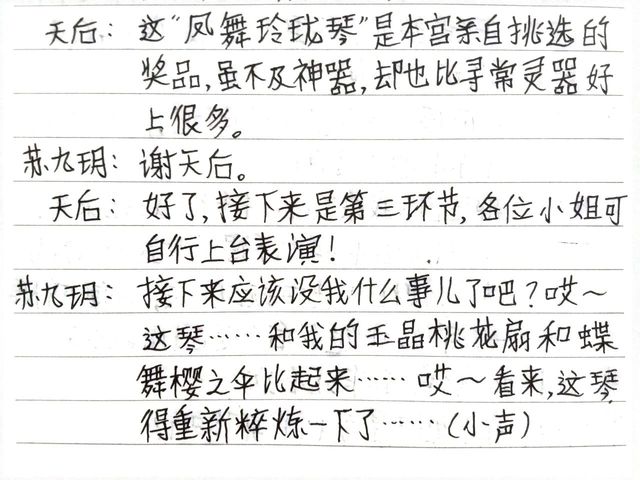 天后：这“凤舞玲珑琴”是本宫亲自挑选的
奖品，虽不及神器，却也比寻常灵器好
上很多。
苏九玥：谢天后。
天后：好了，接下来是第三环节，各位小姐可
自行上台表演！
苏九玥：接下来应该没我什么事儿了吧？哎～
这琴……和我的玉晶桃花扇和蝶
舞樱之伞比起来……哎～看来，这琴
得重新粹炼一下了……（小声）